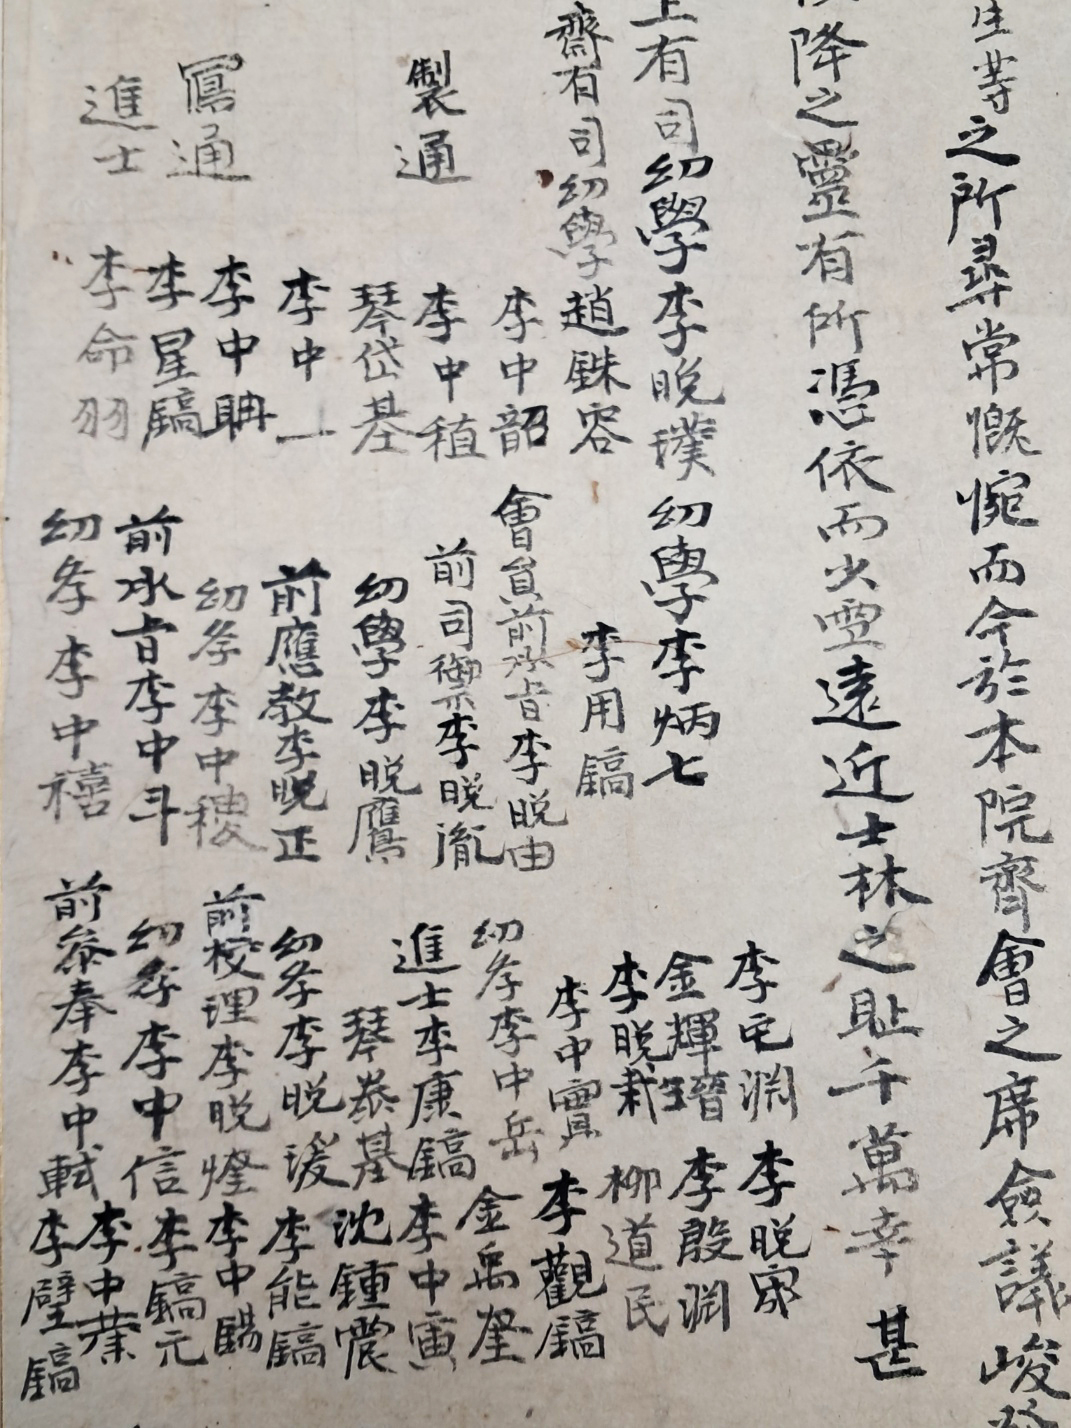 生等之所尋常慨惋而今於本院齊會之席僉議峻發
降之靈有所憑依而少雪遠近士林之恥千萬幸甚
上有司幼學李晩璞 幼學李炳七
李晩寀
李殷淵
金輝
齋有司幼學趙銖容
李用鎬
李晩栽
柳道民
李中韶
會員前承旨李晩由
李中實
李觀鎬
製通
李中稙
前司禦李晩胤
幼學李中岳
金禹
琴岱基
幼學李晩鷹
進士李康鎬
李中寅
李中一
前應敎李晩正
琴基
沈鍾震
鳳通
李中
幼學李中稷
幼學李晩湲
李能鎬
李星鎬
前承旨李中斗
前校理李晩燈
李中賜
進士
李命羽
幼學李中禧
幼學李中信
李鎬元
前參奉李中軾
李中業
李壁鎬